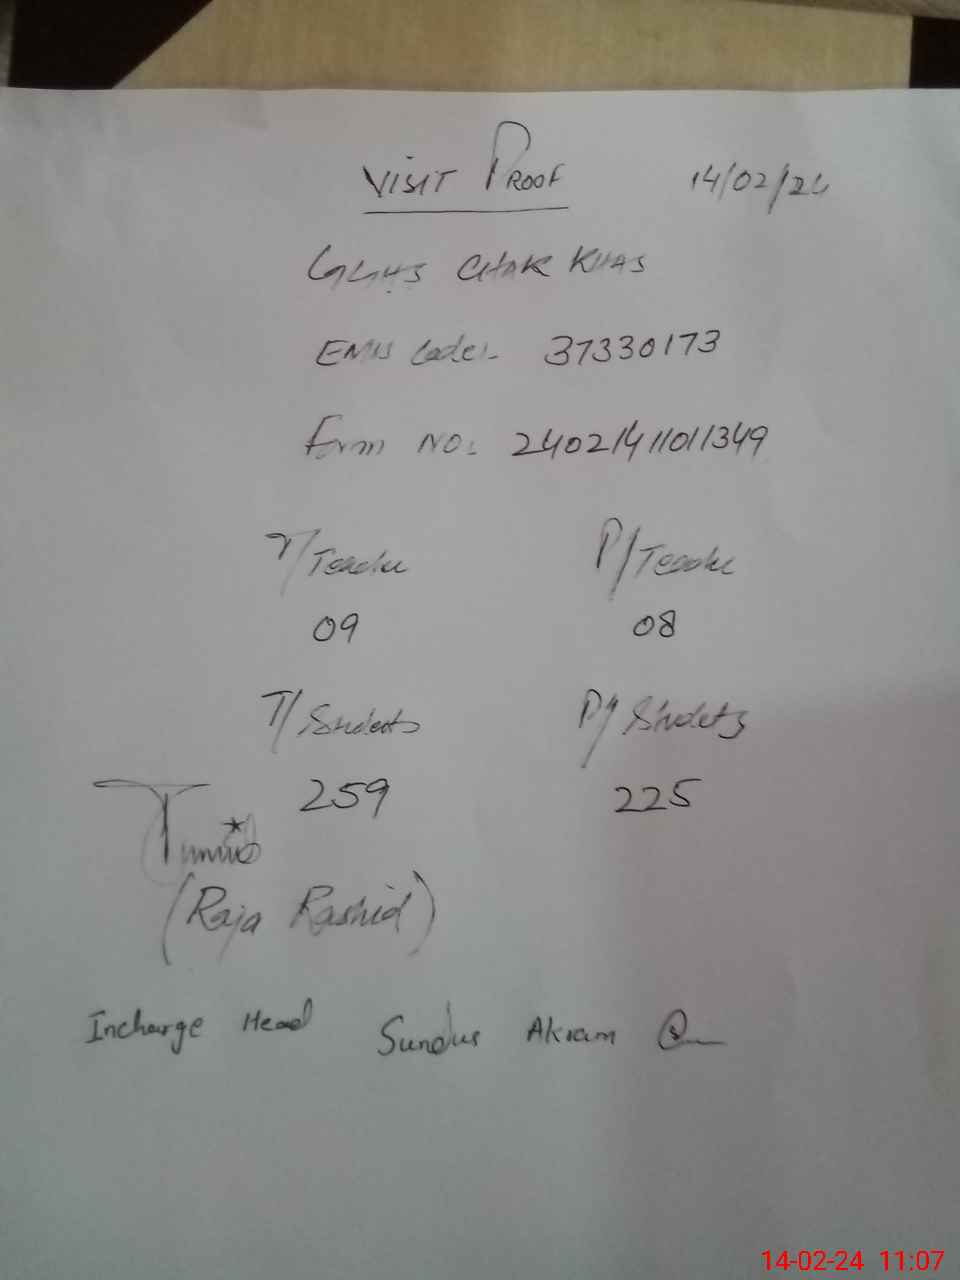 VISIT PROOF 14/02/24
GGHS CHAK KHAS
EMIS Code:- 37330173
Form NO: 24021411011349
T/Teacher P/Teacher
09 08
T/Students P/Students
259 225
(Raja Rashid)
Incharge Head Sundus Akram
14-02-24 11:07